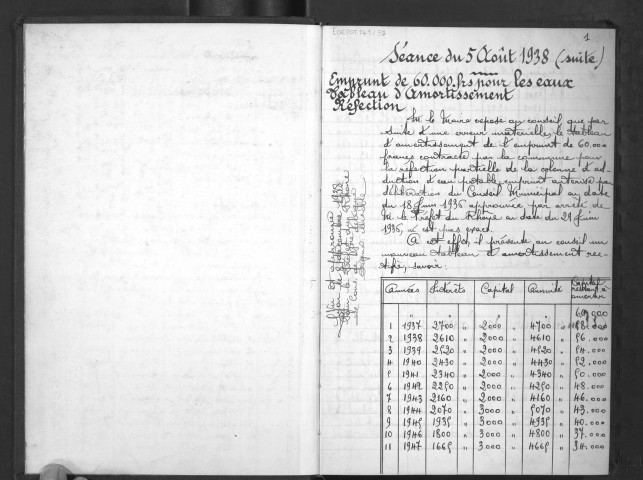 1
Séance du 5 Août 1938 (suite)
Emprunt de 60.000 frs pour les eaux
Tableau d'Amortissement
Réfection
M. le Maire expose au conseil, que par
suite d'une erreur matérielle, le tableau
d'amortissement de l'emprunt de 60.000
francs contracté par la commune pour
la réfection partielle de la colonne d'ad-
duction d'eau potable, emprunt autorisé par
délibération du Conseil Municipal en date
du 18 Juin 1936 approuvée par arrêté de
M. le Préfet du Rhône en date du 29 Juin
1936, n'est pas exact.
A cet effet, il présente au conseil un
nouveau tableau d'amortissement rec-
tifié, savoir:
Vu et approuvé
Lyon, le 1938
Pour le Préfet du Rhône
Années Intérêts Capital Annuité Capital restant à amortir
60.000
1 1937 2700 " 2000 " 4700 " 58.000
2 1938 2610 " 2000 " 4610 " 56.000
3 1939 2520 " 2000 " 4520 " 54.000
4 1940 2430 " 2000 " 4430 " 52.000
5 1941 2340 " 2000 " 4340 " 50.000
6 1942 2250 " 2000 " 4250 " 48.000
7 1943 2160 " 2000 " 4160 " 46.000
8 1944 2070 " 3000 " 5070 " 43.000
9 1945 1935 " 3000 " 4935 " 40.000
10 1946 1800 " 3000 " 4800 " 37.000
11 1947 1665 " 3000 " 4665 " 34.000